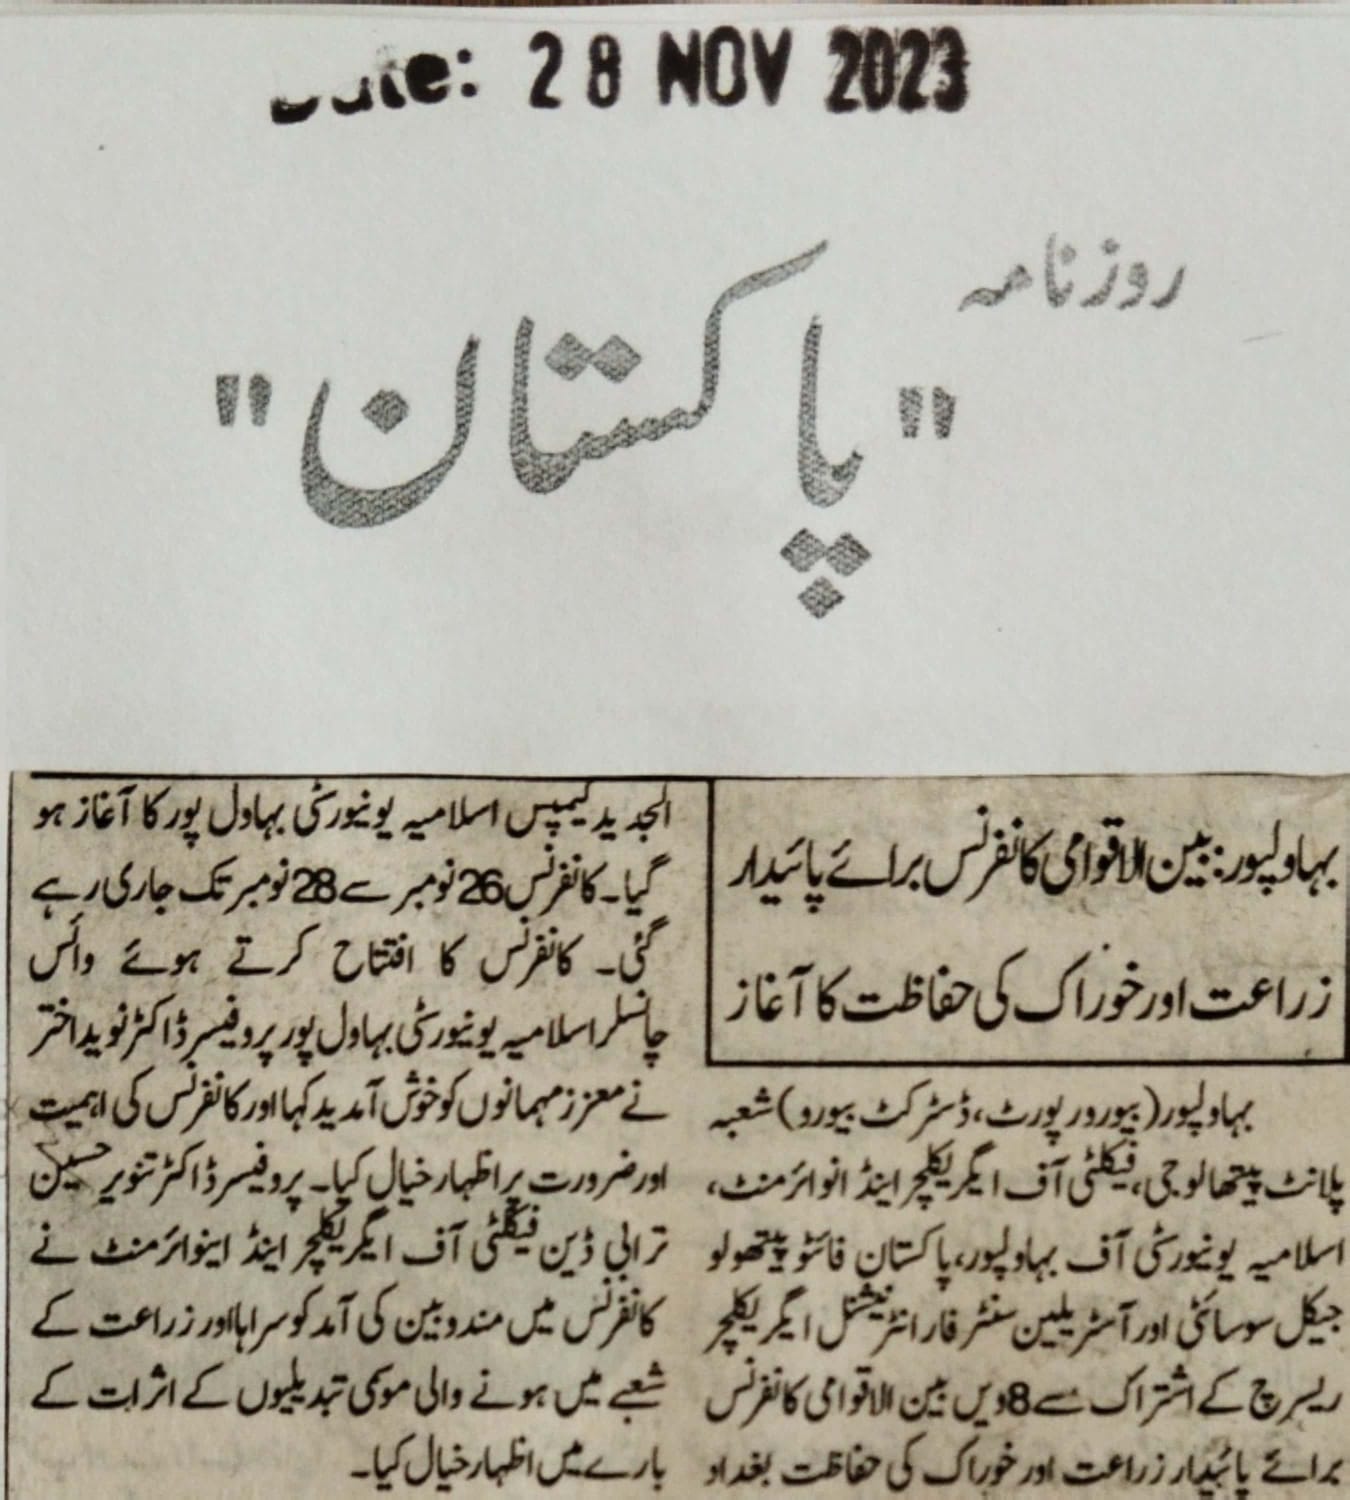 Date: 28 NOV 2023
روزنامہ
"پاکستان"
بہاولپور: بین الاقوامی کانفرنس برائے پائیدار
زراعت اور خوراک کی حفاظت کا آغاز
بہاولپور (بیورورپورٹ، ڈسٹرکٹ بیورو) شعبہ
پلانٹ پیتھالوجی، فیکلٹی آف ایگریکلچر اینڈ انوائرمنٹ،
اسلامیہ یونیورسٹی آف بہاولپور، پاکستان فائٹو پیتھولو
جیکل سوسائٹی اور آسٹریلین سنٹر فار انٹرنیشنل ایگریکلچر
ریسرچ کے اشتراک سے 8ویں بین الاقوامی کانفرنس
برائے پائیدار زراعت اور خوراک کی حفاظت بغداد
الجدید کیمپس اسلامیہ یونیورسٹی بہاول پور کا آغاز ہو
گیا۔ کانفرنس 26 نومبر سے 28 نومبر تک جاری رہے
گئی۔ کانفرنس کا افتتاح کرتے ہوئے وائس
چانسلر اسلامیہ یونیورسٹی بہاول پور پروفیسر ڈاکٹر نوید اختر
نے معزز مہمانوں کو خوش آمدید کہا اور کانفرنس کی اہمیت
اور ضرورت پر اظہار خیال کیا۔ پروفیسر ڈاکٹر تنویر حسین
ترابی ڈین فیکلٹی آف ایگریکلچر اینڈ اینوائرمنٹ نے
کانفرنس میں مندوبین کی آمد کو سراہا اور زراعت کے
شعبے میں ہونے والی موسمی تبدیلیوں کے اثرات کے
بارے میں اظہار خیال کیا۔